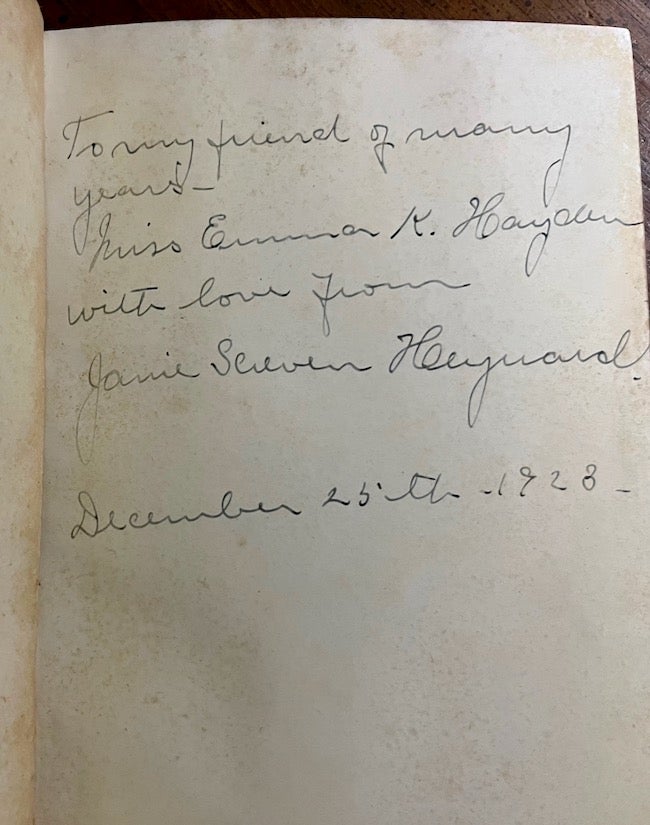 To my friend of many
years—
Miss Emma K. Hayden
with love from
Janie Screven Heyward.
December 25th - 1923 -